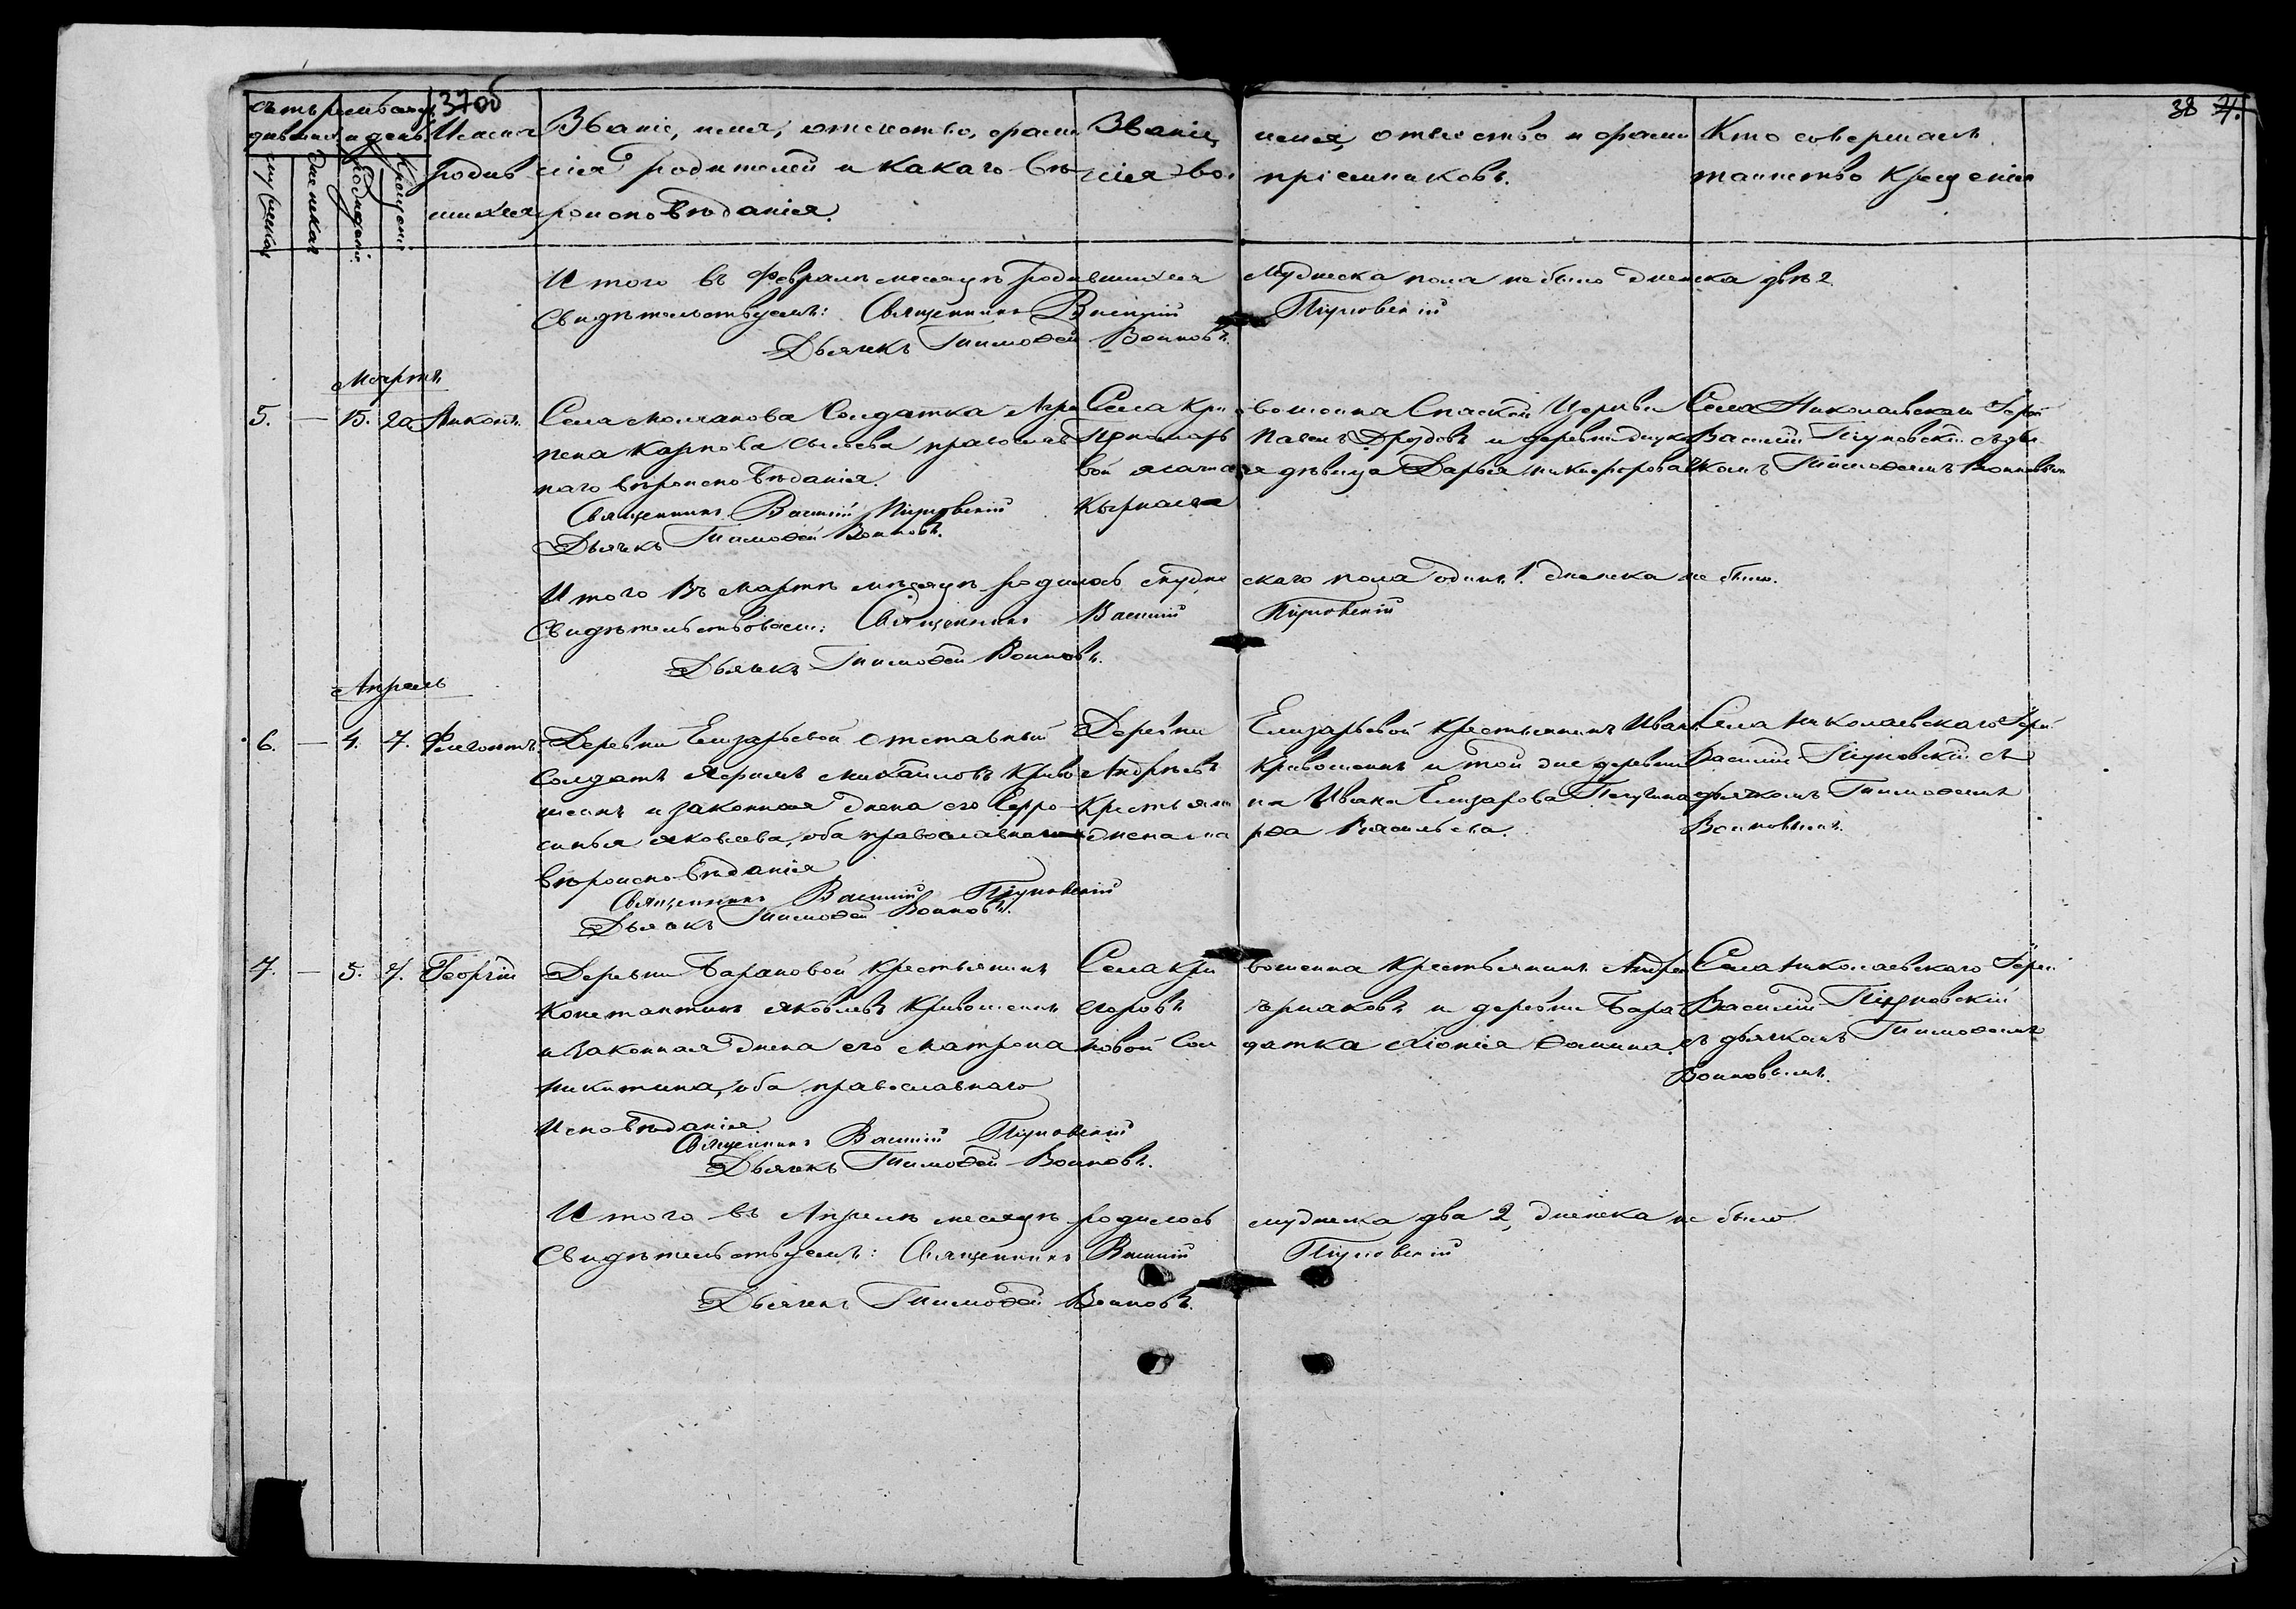 37об
38
Счетъ родившихся
Месяцъ и день
Имена родившихся
Званіе, имя, отечество, фамилія родителей и какаго вѣроисповѣданія.
Званіе, имя, отечество и фамилія воспріемниковъ.
Кто совершалъ таинство Крещенія
мужеска
женска
рожденіе
крещеніе
Итого въ Февралѣ месяцѣ родившихся мужеска пола небыло женска двѣ 2
Свидѣтельствуемъ: Священникъ Василій
Дьячекъ Тимофей Воиновъ.
Мартъ
5. — 15. 20 Никонъ.
Села Молчанова Солдатка Агри
пена Карпова сы православ
наго вѣроисповѣданія.
Священникъ Василій
Дьячекъ Тимофей Воиновъ.
Села Кривошеина Спаской Церкви
Пономарь Дроздовъ и деревни
вой дѣвица Дарья Никифорова
Села Николаевскаго Іерей
Василій съ дья
чкомъ Тимофеемъ Воиновым
Итого въ Мартѣ мѣсяцѣ родилось мужескаго пола одинъ 1. женска не было.
Свидѣтельствовали: Священникъ Василій
Дьячекъ Тимофей Воиновъ.
Апрель
6. — 4. 7. Флегонтъ.
Деревни Елизарьевой отставный
Солдатъ Михайловъ Криво
шеинъ и законная жена его Ефро
синья Яковлева, оба православнаго
вѣроисповѣданія
Священникъ Василій
Дьячекъ Тимофей Воиновъ.
Деревни Елизарьевой крестьянинъ Иванъ
Андрѣевъ Кривошеинъ и той же деревни
Крестьянина Ивана Елизарова
жена Марфа Васильева.
Села Николаевскаго Іерей
Василій съ
дьячкомъ Тимофеемъ
Воиновымъ.
7. — 5. 7. Георгій
Деревни Барановой крестьянинъ
Константинъ Яковлевъ Кривошеинъ
и законная жена его Матрона
Никитина, оба православнаго
Исповѣданія.
Священникъ Василій
Дьячекъ Тимофей Воиновъ.
Села Кривошеина крестьянинъ Андрей
Егоровъ Ермаковъ и деревни Бара
новой Солдатка Хіонія Фомина.
Села Николаевскаго Іерей
Василій
съ дьячкомъ Тимофеемъ
Воиновымъ.
Итого въ Апрелѣ месяцѣ родилось мужеска два 2, женска не было
Свидѣтельствуемъ: Священникъ Василій
Дьячекъ Тимофей Воиновъ.